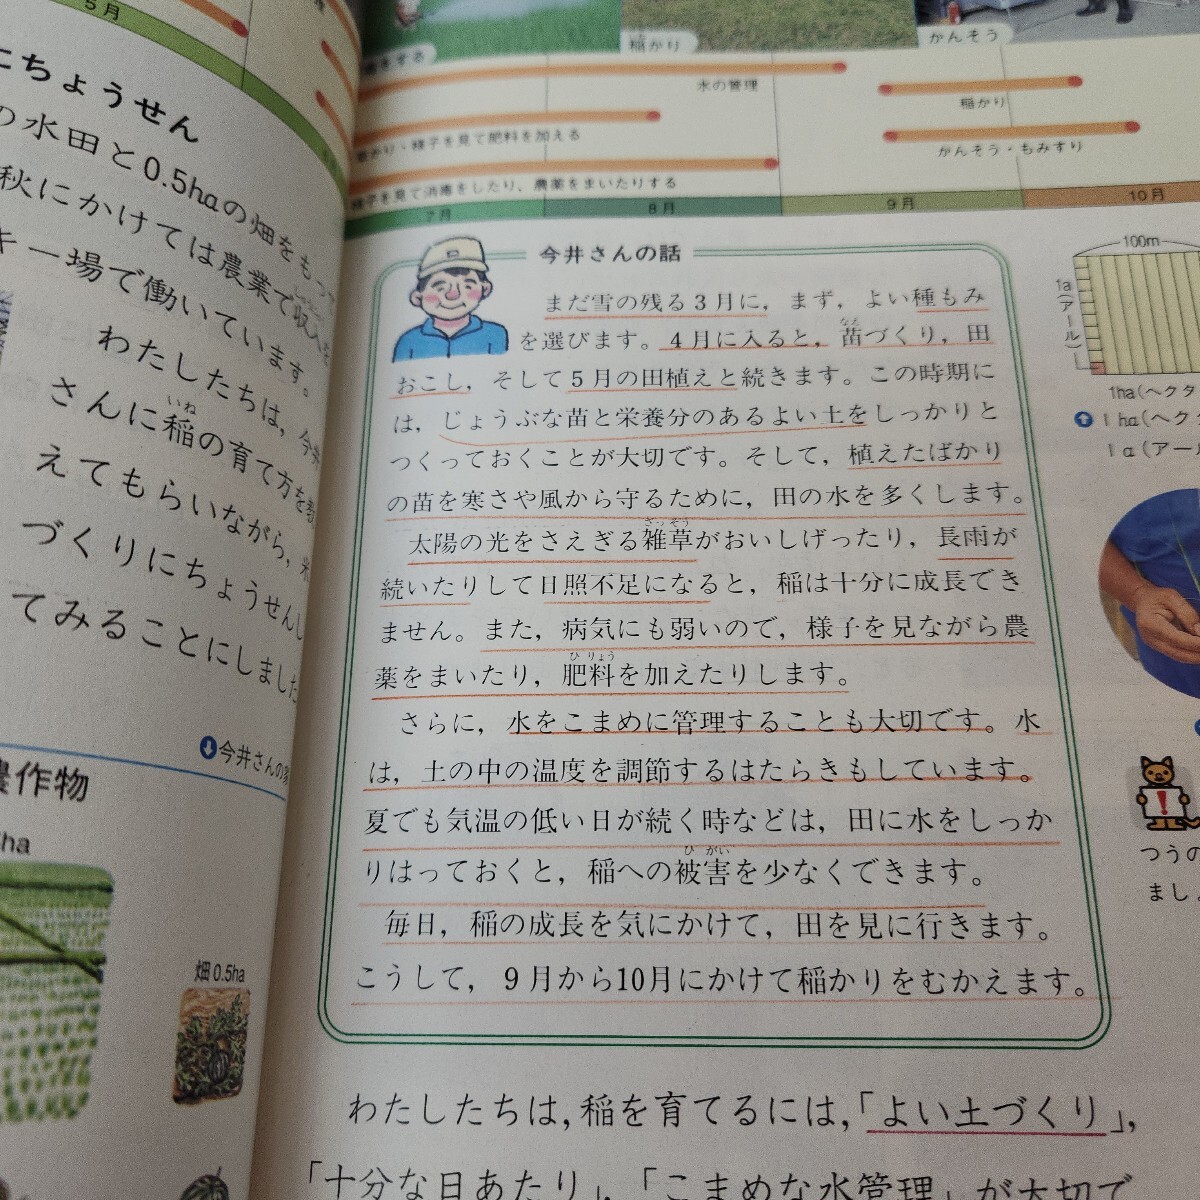 5月
にちょうせん
の水田と0.5haの畑をもっ
秋にかけては農業で収入を
キー場で働いています。
わたしたちは，今井
さんに稲の育て方を教
いね
えてもらいながら，米
づくりにちょうせんし
てみることにしました
今井さんの家
農作物
畑0.5ha
稲かり
かんそう
水の管理
稲かり
様子を見て肥料を加える
かんそう・もみすり
様子を見て消毒をしたり，農薬をまいたりする
7月
8月
9月
10月
今井さんの話
まだ雪の残る3月に，まず，よい種もみ
を選びます。4月に入ると，苗づくり，田
なえ
おこし，そして5月の田植えと続きます。この時期に
は，じょうぶな苗と栄養分のあるよい土をしっかりと
つくっておくことが大切です。そして，植えたばかり
の苗を寒さや風から守るために，田の水を多くします。
太陽の光をさえぎる雑草がおいしげったり，長雨が
ざっそう
続いたりして日照不足になると，稲は十分に成長でき
ません。また，病気にも弱いので，様子を見ながら農
薬をまいたり，肥料を加えたりします。
ひりょう
さらに，水をこまめに管理することも大切です。水
は，土の中の温度を調節するはたらきもしています。
夏でも気温の低い日が続く時などは，田に水をしっか
りはっておくと，稲への被害を少なくできます。
ひがい
毎日，稲の成長を気にかけて，田を見に行きます。
こうして，9月から10月にかけて稲かりをむかえます。
100m
1a
(アール)
1ha(ヘクタ
1ha(ヘク
1a(アール
つうの
まし
わたしたちは，稲を育てるには，「よい土づくり」，
「十分な日あたり」，「こまめな水管理」が大切で